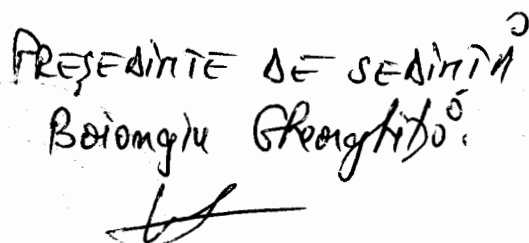 PREȘEDINTE DE SEDINTĂ
Boiongiu Gheorghiță.